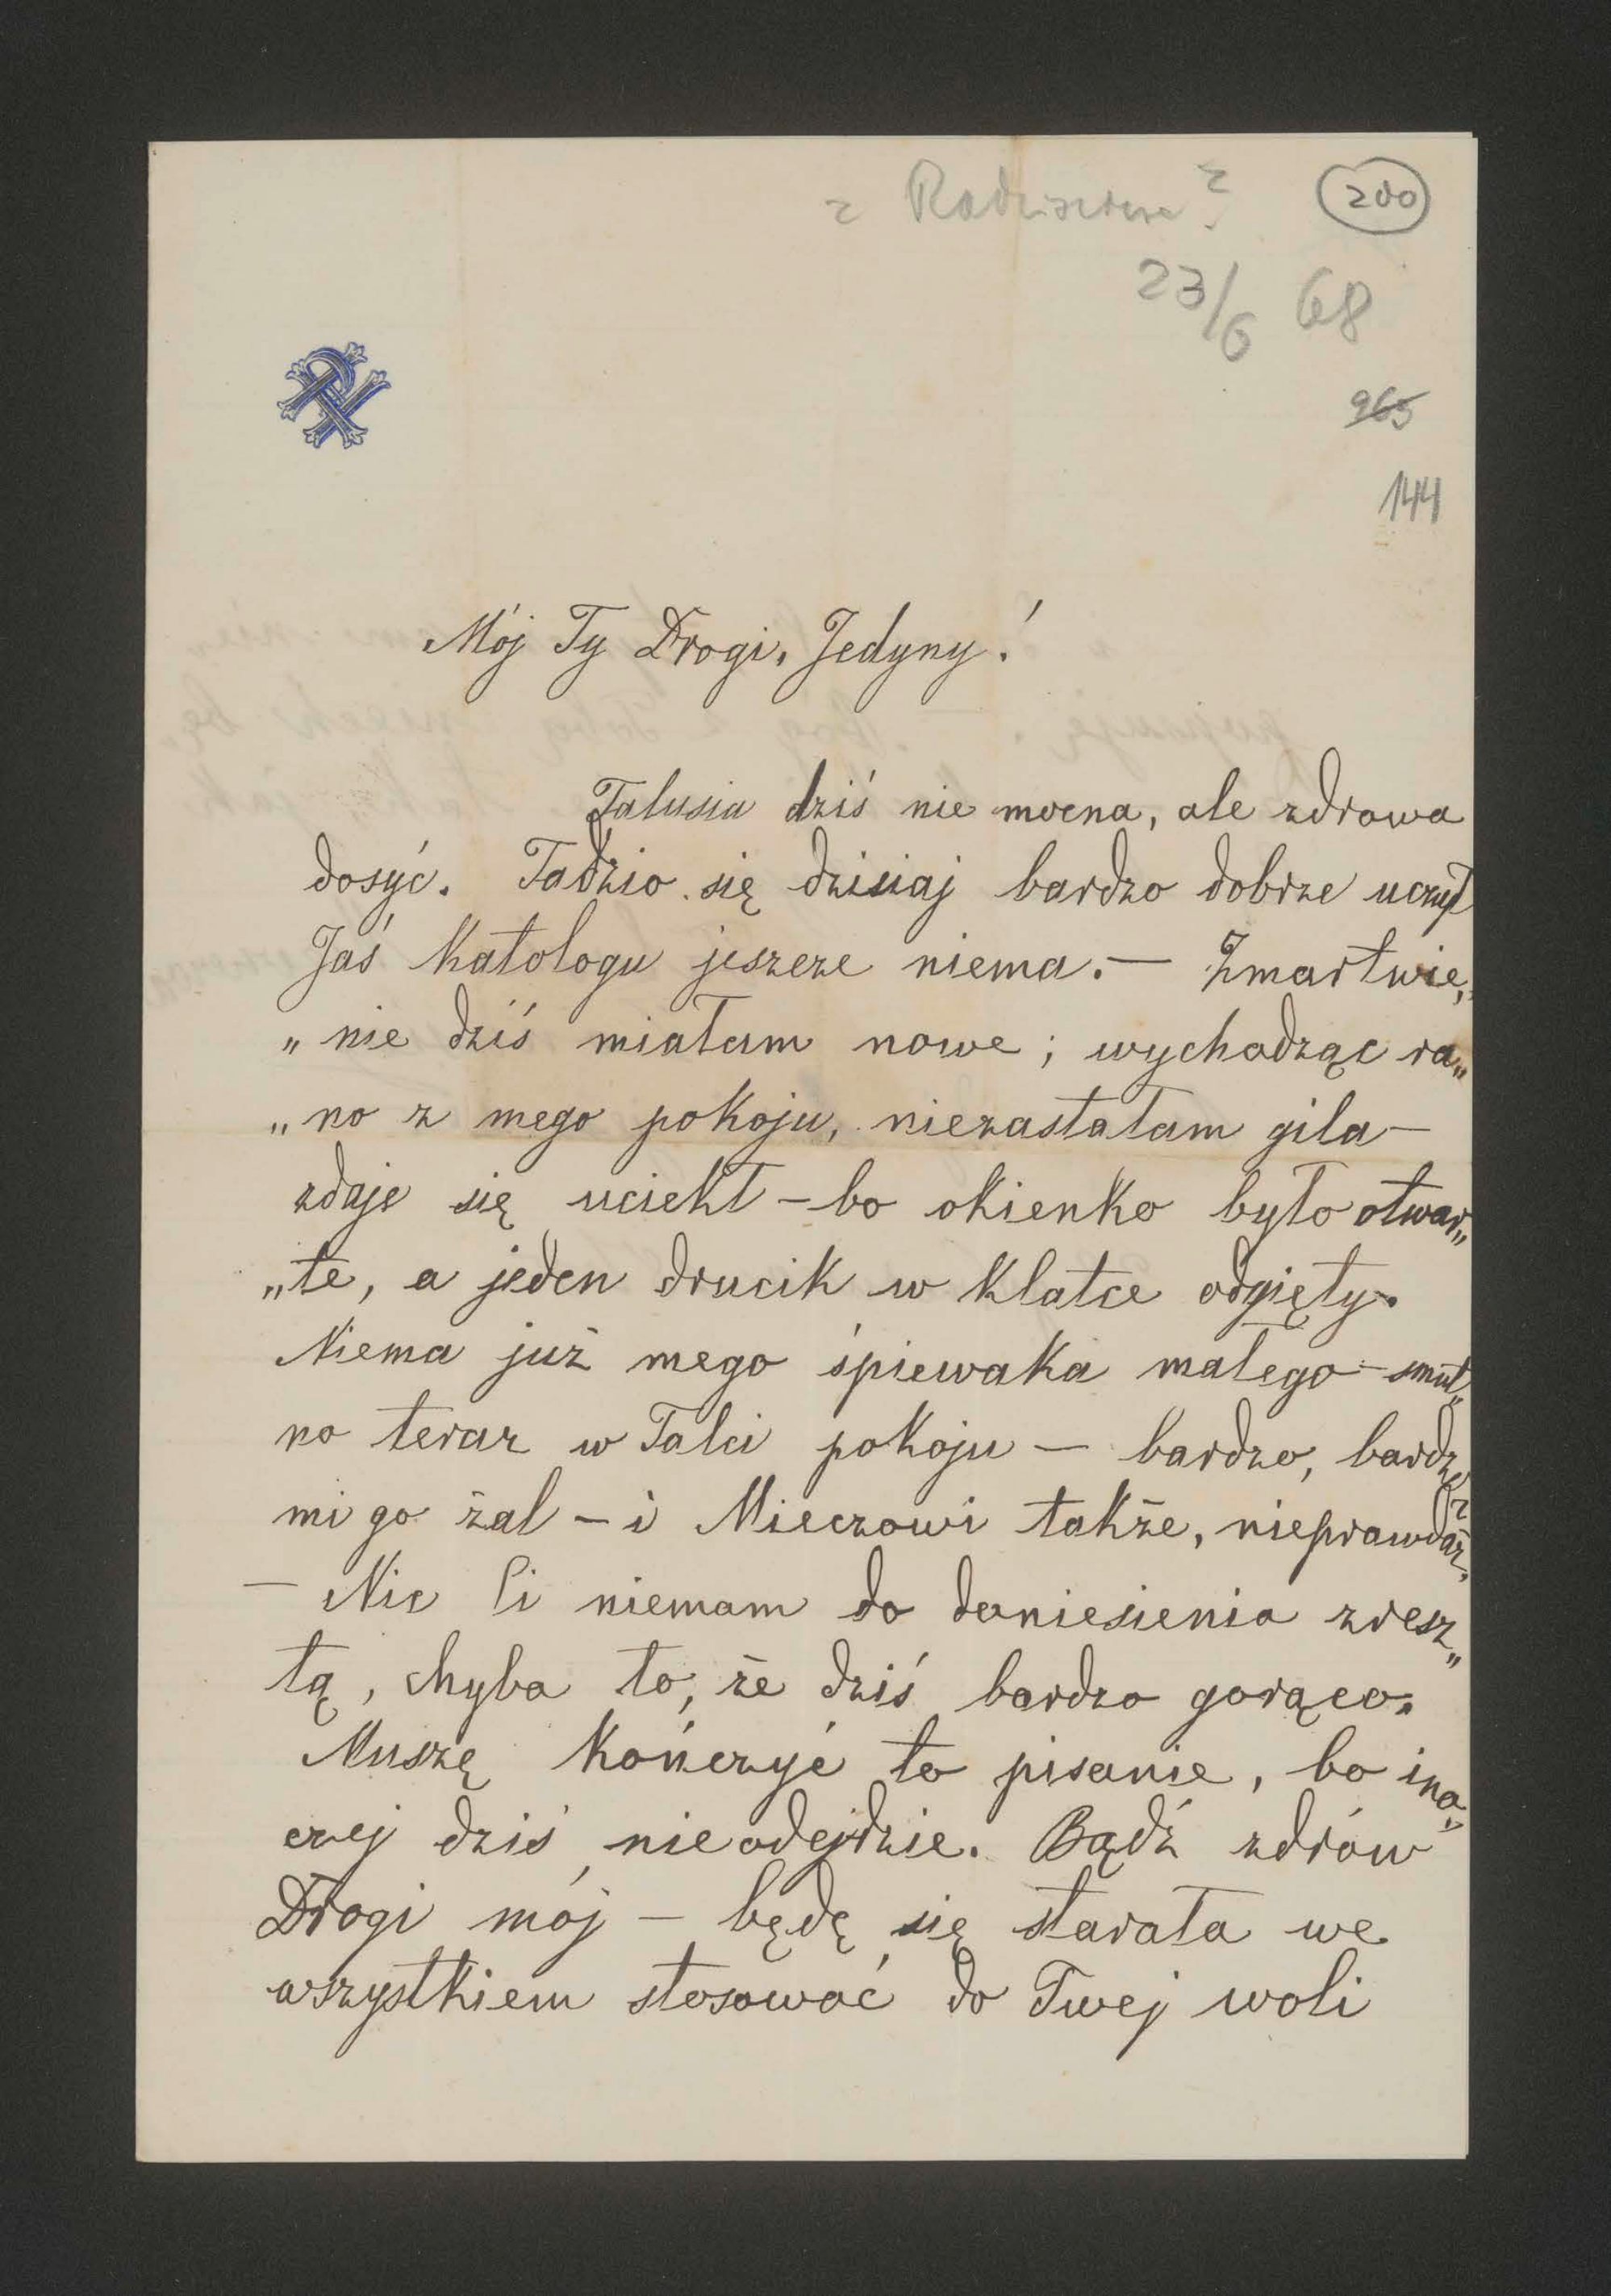 z Radziszewa?
200
23/6 68
965
144
Mój Ty Drogi, Jedyny!
Talusia dziś nie mocna, ale zdrowa
dosyć. Tadzio się dzisiaj bardzo dobrze uczył
Jaś Katologu jeszcze niema. — Zmartwie„
„nie dziś miałam nowe; wychodząc ra„
„no z mego pokoju, niezastałam gila —
zdaje się uciekł — bo okienko było otwar„
„te, a jeden drucik w klatce odgięty.
Niema już mego śpiewaka małego — smut„
no teraz w Talci pokoju — bardzo, bardzo
mi go żal — i Mieczowi także, nieprawdaż?
— Nic Ci niemam do doniesienia zresz„
tą, chyba to, że dziś bardzo gorąco.
Muszę kończyć to pisanie, bo ina„
czej dziś nieodejdzie. Bądź zdrów
Drogi mój — będę się starała we
wszystkiem stosować do Twej woli